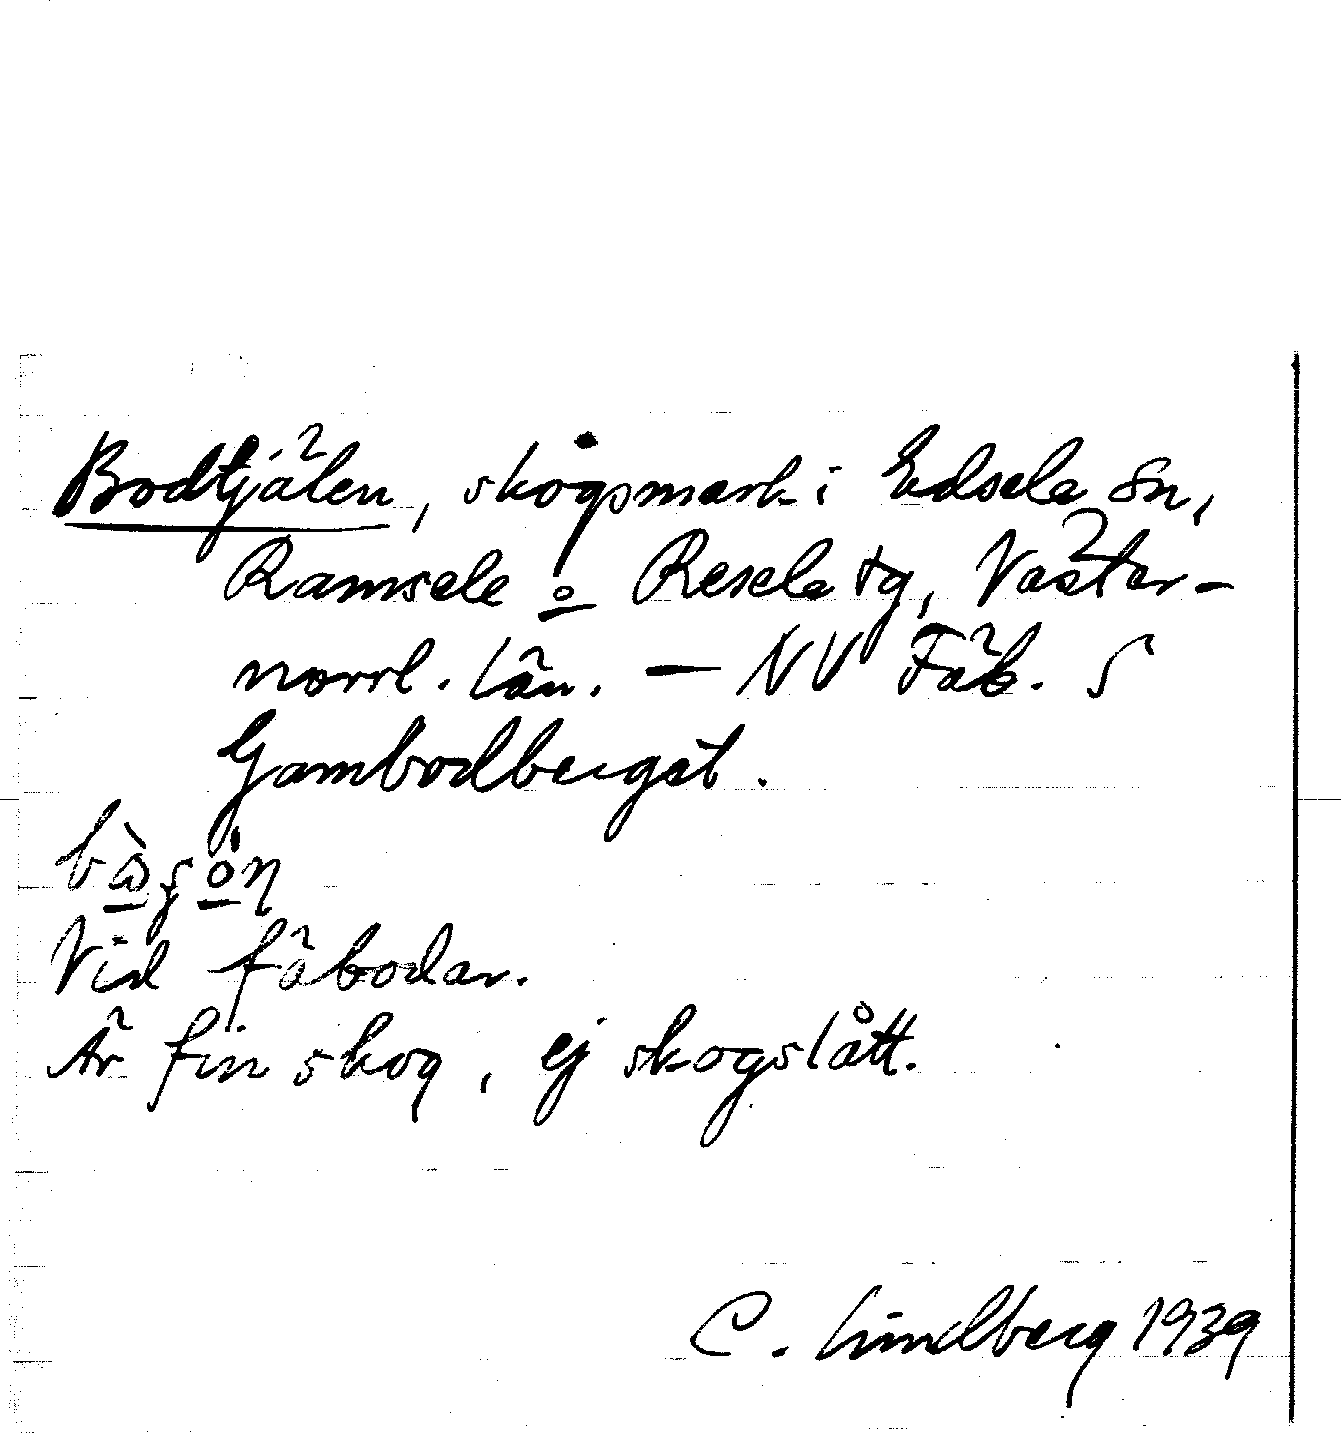 Bodtjälen, skogsmark i Edsele sn,
Ramsele o Resele tg, Väster-
norrl. län. — NV Fäb. S
Gambodberget.
Vid fäbodar.
Är fin skog, ej skogslått.
C. Lindberg 1939